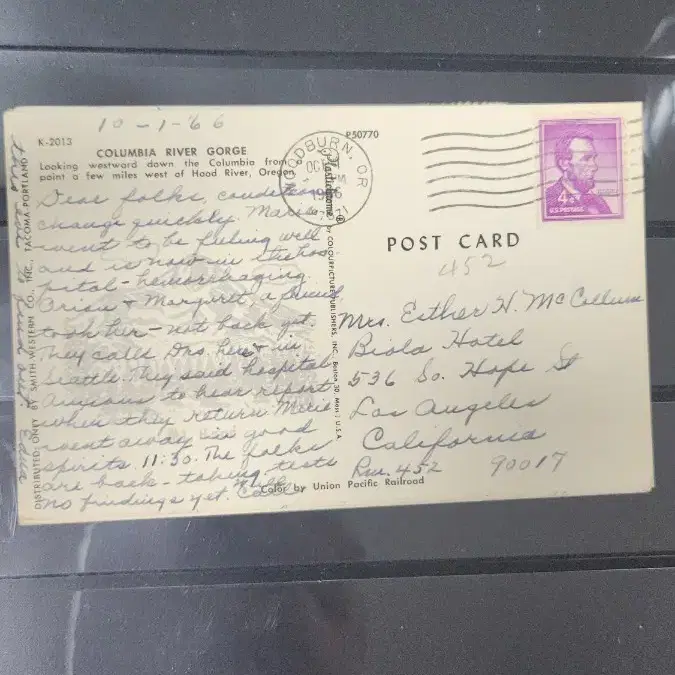 10-1-'66
K-2013
P50770
COLUMBIA RIVER GORGE
Looking westward down the Columbia from a
point a few miles west of Hood River, Oregon
Dear folks, conditions
change quickly. Marie
went to be feeling well
and is now in the hos-
pital - hemorrhaging
& Margaret, a friend,
took her - not back yet.
They calls Drs. here & in
Seattle. They said hospital
Anxious to hear report
when they return. Marie
went away in good
spirits 11:30. The folks
are back - taking tests
no findings yet.
to find out. Edna
DISTRIBUTED ONLY BY SMITH-WESTERN CO., INC., TACOMA-PORTLAND
WOODBURN, OR
OCT
1966
Plastichrome ®
by COLOURPICTURE PUBLISHERS, INC., Boston 30, Mass., U.S.A.
4¢
U.S. POSTAGE
POST CARD
452
Mrs. Esther H. McCollum
Biola Hotel
536 So. Hope St
Los Angeles
California
Rm. 452 90017
Color by Union Pacific Railroad